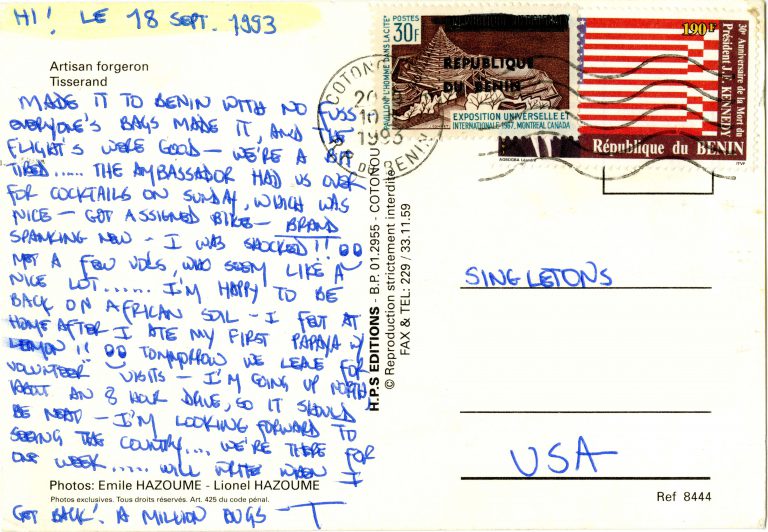 HI! LE 18 SEPT. 1993
Artisan forgeron
Tisserand
MADE IT TO BENIN WITH NO FUSS
EVERYONE'S BAGS MADE IT, AND THE
FLIGHT'S WERE GOOD — WE'RE A BIT
TIRED..... THE AMBASSADOR HAD US OVER
FOR COCKTAILS ON SUNDAY, WHICH WAS
NICE — GOT ASSIGNED BIKE — BRAND
SPANKING NEW — I WAS SHOCKED!!
MET A FEW VOLS, WHO SEEM LIKE A
NICE LOT...... I'M HAPPY TO BE
BACK ON AFRICAN SOIL — I FELT AT
HOME AFTER I ATE MY FIRST PAPAYA W/
LEMON!! TOMMORROW WE LEAVE FOR
VOLUNTEER VISITS — I'M GOING UP NORTH
ABOUT AN 8 HOUR DRIVE, SO IT SHOULD
BE NEAD — I'M LOOKING FORWARD TO
SEEING THE COUNTRY.... WE'RE THERE FOR
ONE WEEK..... WILL WRITE WHEN I
Photos: Emile HAZOUME - Lionel HAZOUME
Photos exclusives. Tous droits réservés. Art. 425 du code pénal.
GET BACK! A MILLION BUGS — T
H.P.S EDITIONS - B.P. 01.2955 - COTONOU
© Reproduction strictement interdite
FAX & TEL: 229 / 33.11.59
POSTES
30F
REPUBLIQUE
DU BENIN
PAVILLON L'HOMME DANS LA CITE
EXPOSITION UNIVERSELLE ET
INTERNATIONALE 1967, MONTREAL CANADA
COTONOU
20
1993
DU BENIN
190F
30e Anniversaire de la Mort du
Président J.F. KENNEDY
République du BENIN
SINGLETONS
USA
Ref 8444